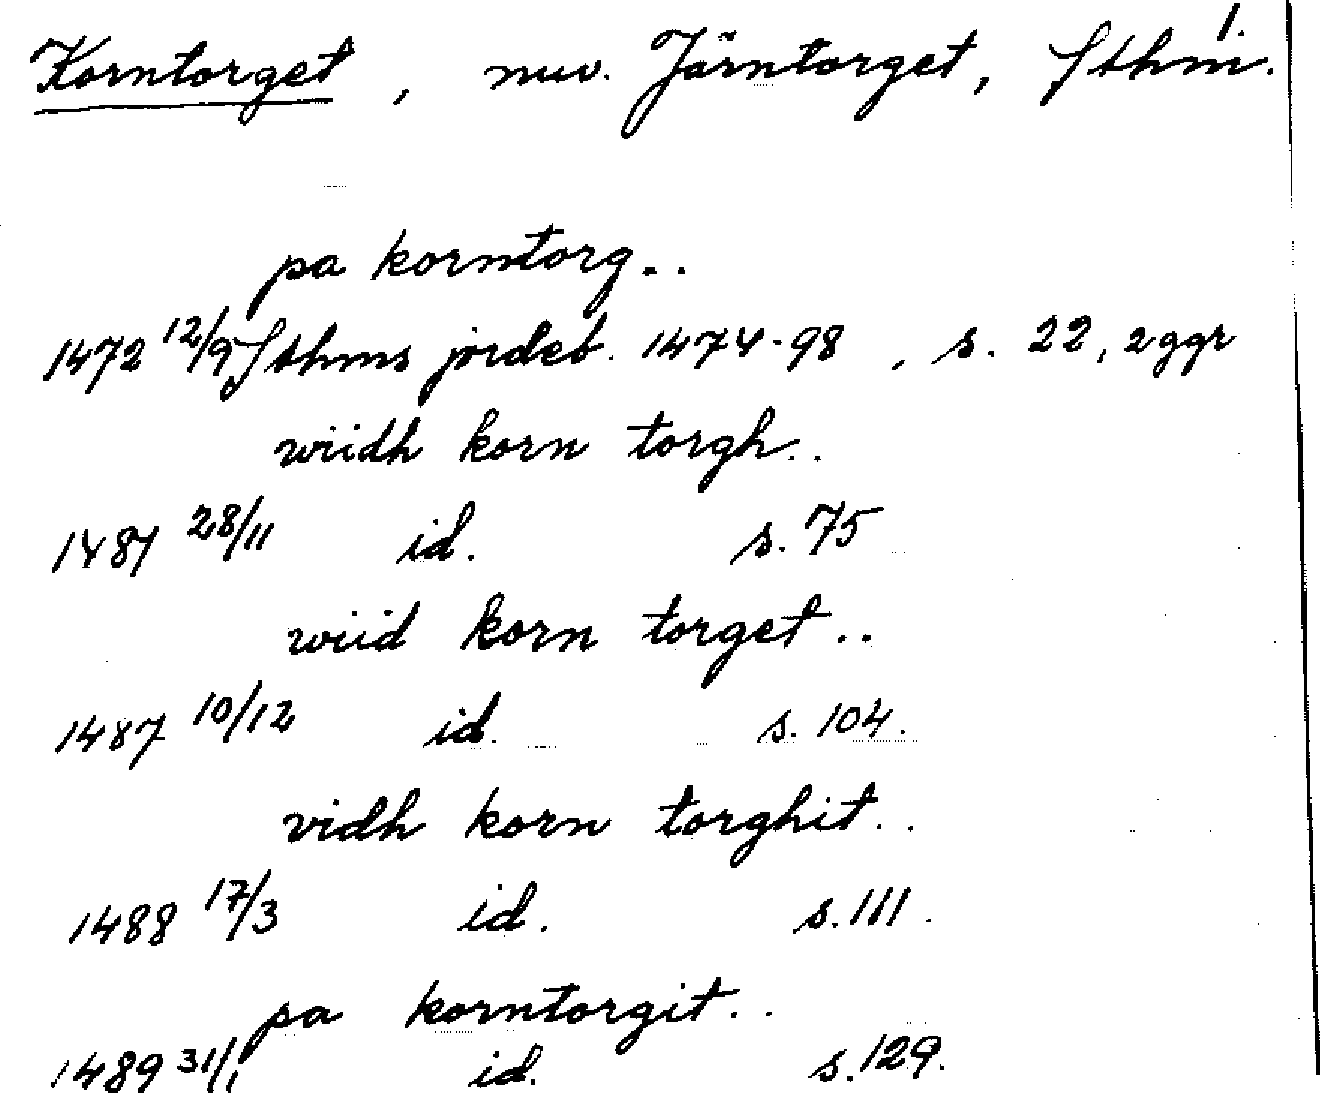 1.
Korntorget, nuv. Järntorget, Sthm.
pa korntorg..
1472 12/9 Sthms jordeb. 1474-98, s. 22, 2 ggr
wiidh korn torgh..
1487 28/11 id. s. 75
wiid korn torget..
1487 10/12 id. s. 104.
vidh korn torghit..
1488 17/3 id. s. 111.
pa korntorgit..
1489 31/1 id. s. 129.